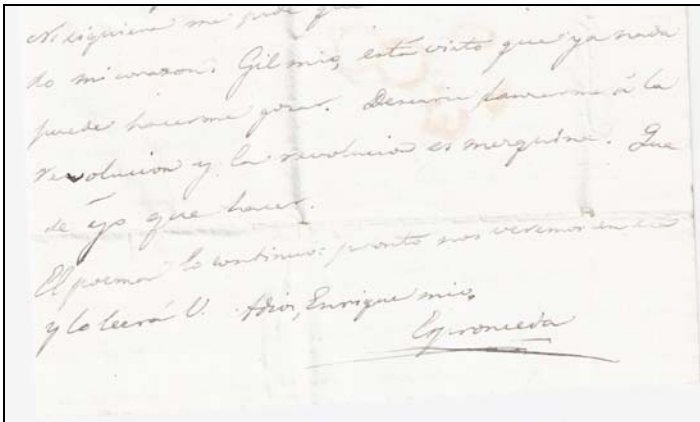 Ni siquiera me pude
do mi corazon. Gil mio, está visto que ya nada
puede hacerme gozar. Desearia lanzarme á la
revolucion y la revolucion es mezquina. Que
de yo que hacer.
El poema lo continuo: pronto nos veremos en esa
y lo leerá V. Adios, Enrique mio,
Espronceda